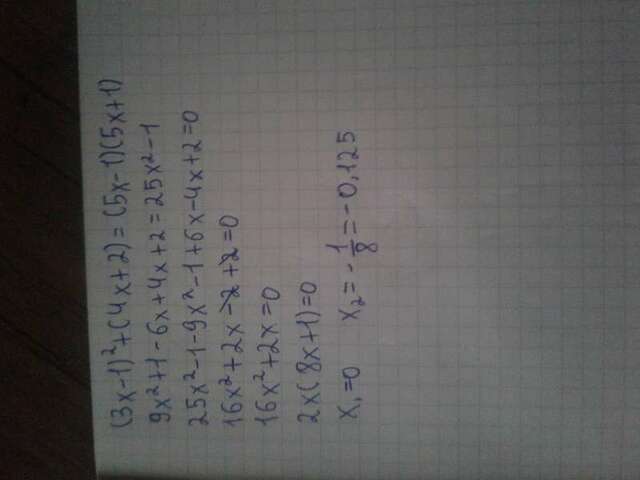 (3x-1)²+(4x+2)=(5x-1)(5x+1)
9x²+1-6x+4x+2=25x²-1
25x²-1-9x²-1+6x-4x+2=0
16x²+2x-2+2=0
16x²+2x=0
2x(8x+1)=0
x₁=0 x₂=-1/8=-0,125